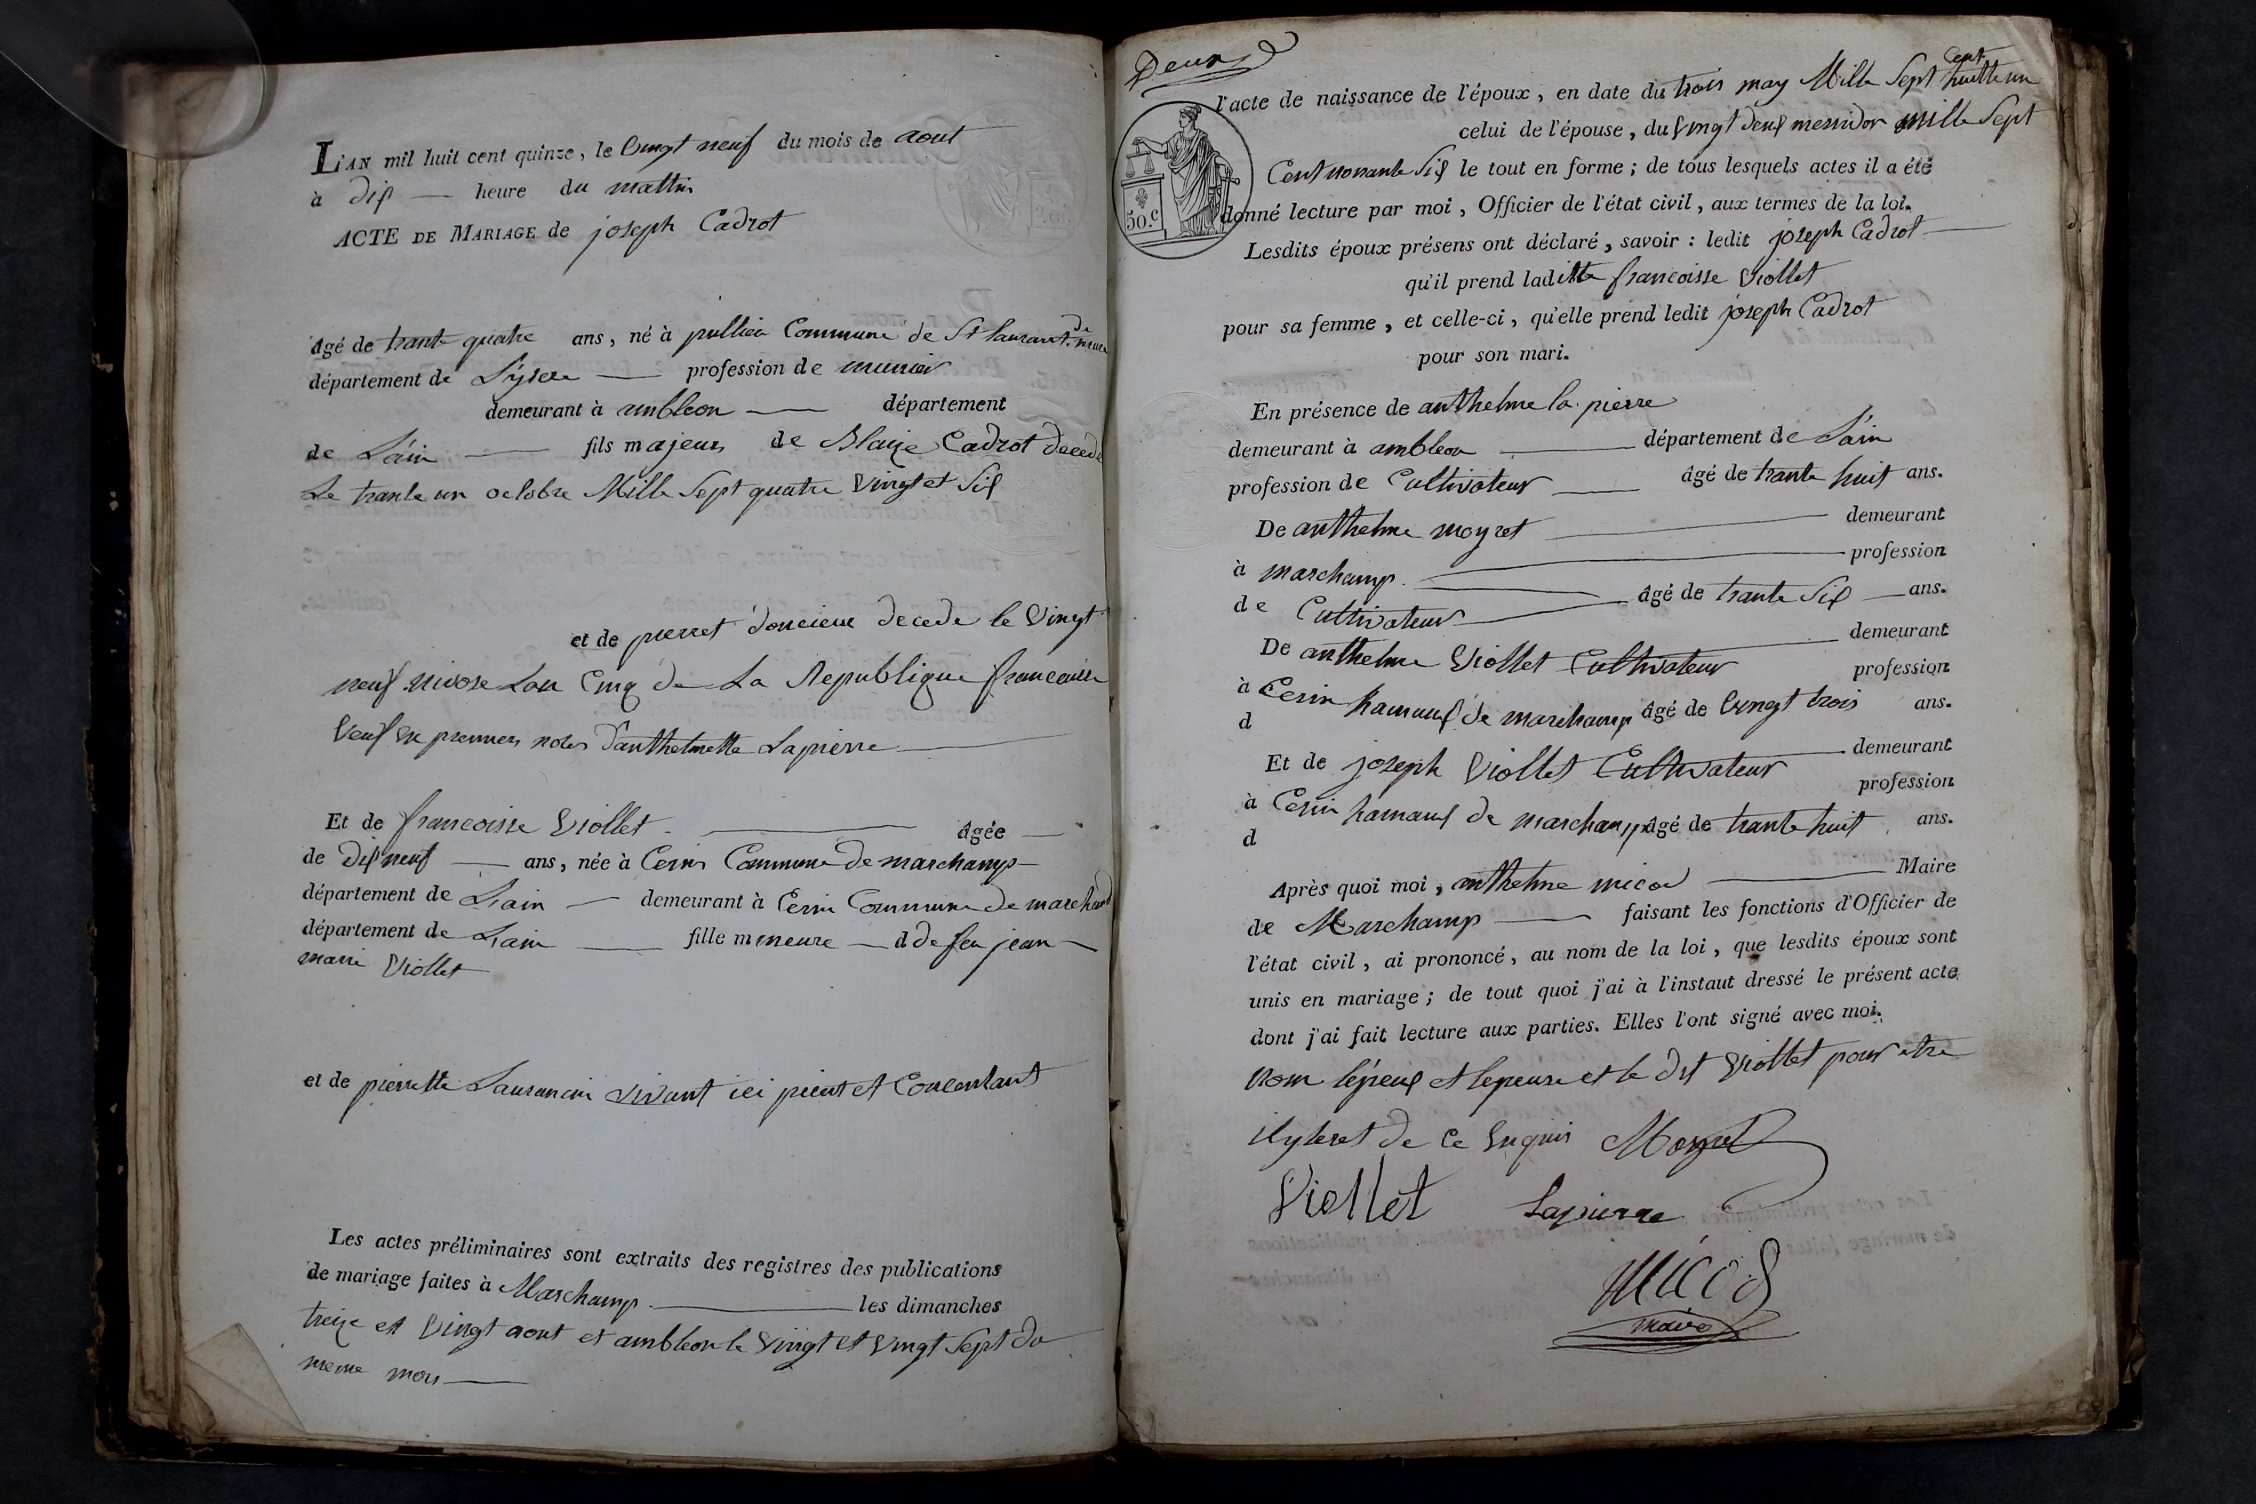 L'AN mil huit cent quinze, le vingt neuf du mois de aout
à dix heure du mattin
ACTE DE MARIAGE de joseph Cadrot
âgé de trante quatre ans, né à Commune de St laurant de mure
département de L'ysere profession de munier
demeurant à ambleon département
de L'ain fils majeur de Blaize Cadrot decede
Le trante un octobre Mille Sept quatre vingt et Six
et de pierret doncieux decede le vingt
neuf nivose Lan Cinq de La Republique francaisse
veuf en premier noces d'anthelmette Lapierre
Et de francoisse Viollet âgée
de dix neuf ans, née à Cerin Commune de marchamp
département de Lain demeurant à Cerin Commune de marchamp
département de Lain fille mineure d de feu jean
marie Viollet
et de pierrette Laurancin vivant ici et Concentant
Les actes préliminaires sont extraits des registres des publications
de mariage faites à Marchamp les dimanches
treize et vingt aout et ambleon le vingt et vingt Sept du
meme mois
Deux
l'acte de naissance de l'époux, en date du trois may Mille Sept Cent huitte un
celui de l'épouse, du vingt deux messidor mille Sept
Cent nonante Six le tout en forme ; de tous lesquels actes il a été
50.c donné lecture par moi, Officier de l'état civil, aux termes de la loi.
Lesdits époux présens ont déclaré, savoir : ledit joseph Cadrot
qu'il prend laditte francoisse Viollet
pour sa femme, et celle-ci, qu'elle prend ledit joseph Cadrot
pour son mari.
En présence de anthelme la pierre
demeurant à ambleon département de L'ain
profession de Cultivateur âgé de trante huit ans.
De anthelme moyret demeurant
à marchamp profession
de Cultivateur âgé de trante Six ans.
De anthelme Viollet Cultivateur demeurant
à Cerin hamaux de marchamp profession
d âgé de vingt trois ans.
Et de joseph Viollet Cultivateur demeurant
à Cerin hamaux de marchamp profession
d âgé de trante huit ans.
Après quoi moi, anthelme micod Maire
de Marchamp faisant les fonctions d'Officier de
l'état civil, ai prononcé, au nom de la loi, que lesdits époux sont
unis en mariage ; de tout quoi j'ai à l'instaut dressé le présent acte
dont j'ai fait lecture aux parties. Elles l'ont signé avec moi.
non lepeux et lepeuse et le dit Viollet pour etre
ilyteret de Ce Enquis Moyret
Viollet Lapierre
MICOD
maire